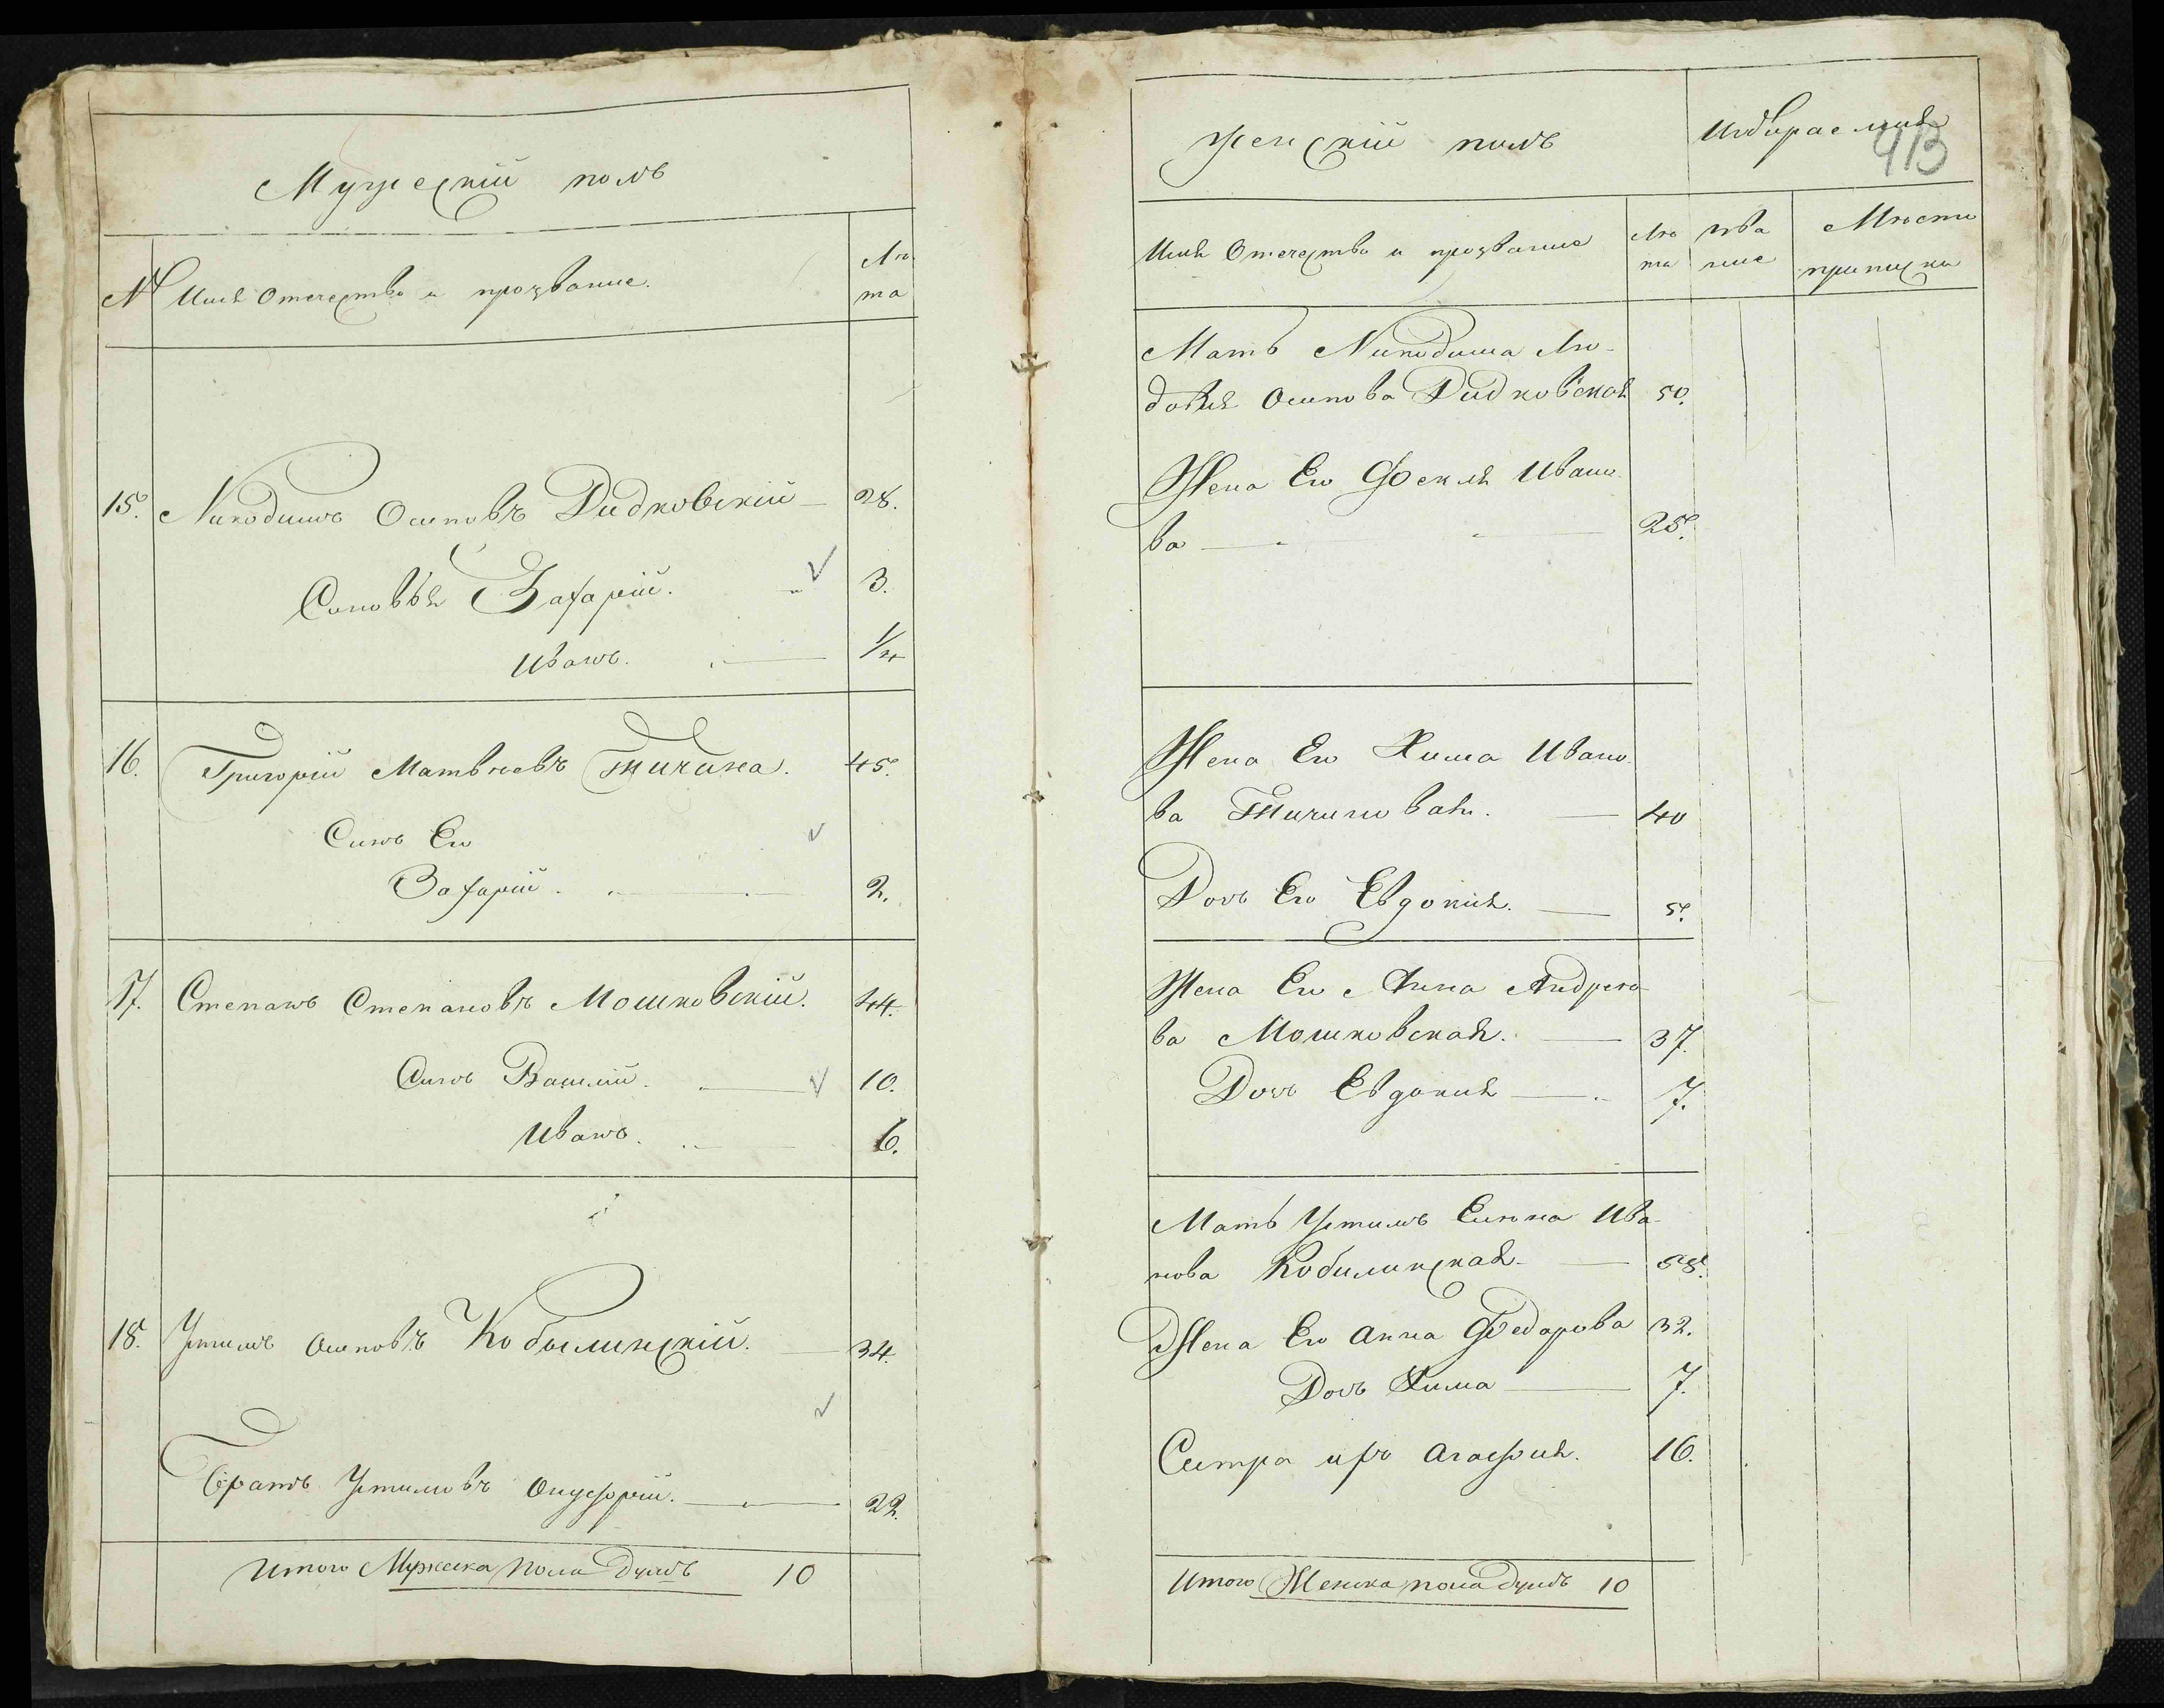 Мужескій полъ
№ Имя Отечество и прозвание.
Лѣ
та
15. Никодимъ Осиповъ Дидковскій 28.
Сыновья Захарій. 3.
Иванъ. 1/4
16. Григорій Матвѣевъ Тичина. 45.
Сынъ Его
Захарій. 2.
17. Степанъ Степановъ Мошковскій. 44.
Сынъ Василій. 10.
Иванъ. 6.
18. Устимъ Осиповъ Кобылинскій. 34.
Братъ Устимовъ Онуфрій. 22.
Итого Мужеска пола душъ 10
Женскій полъ
413
Имя Отечество и прозвание
Лѣ
та
ва
ние
Место
приписки
Мать Никодима Лю-
довия Осипова Дидковская 50.
Жена Его Фекля Ивано
ва 25.
Жена Его Хима Ивано
ва Тичиновая. 40
Дочь Его Евдокия. 5.
Жена Его Анна Андреѣ
ва Мошковская. 37.
Дочь Евдокия 7.
Мать Устимъ Ива-
нова Кобилинская 58.
Жена Его Анна Федорова 32.
Дочь Хима 7.
Сестра ихъ Агафия. 16.
Итого Женска пола душъ 10